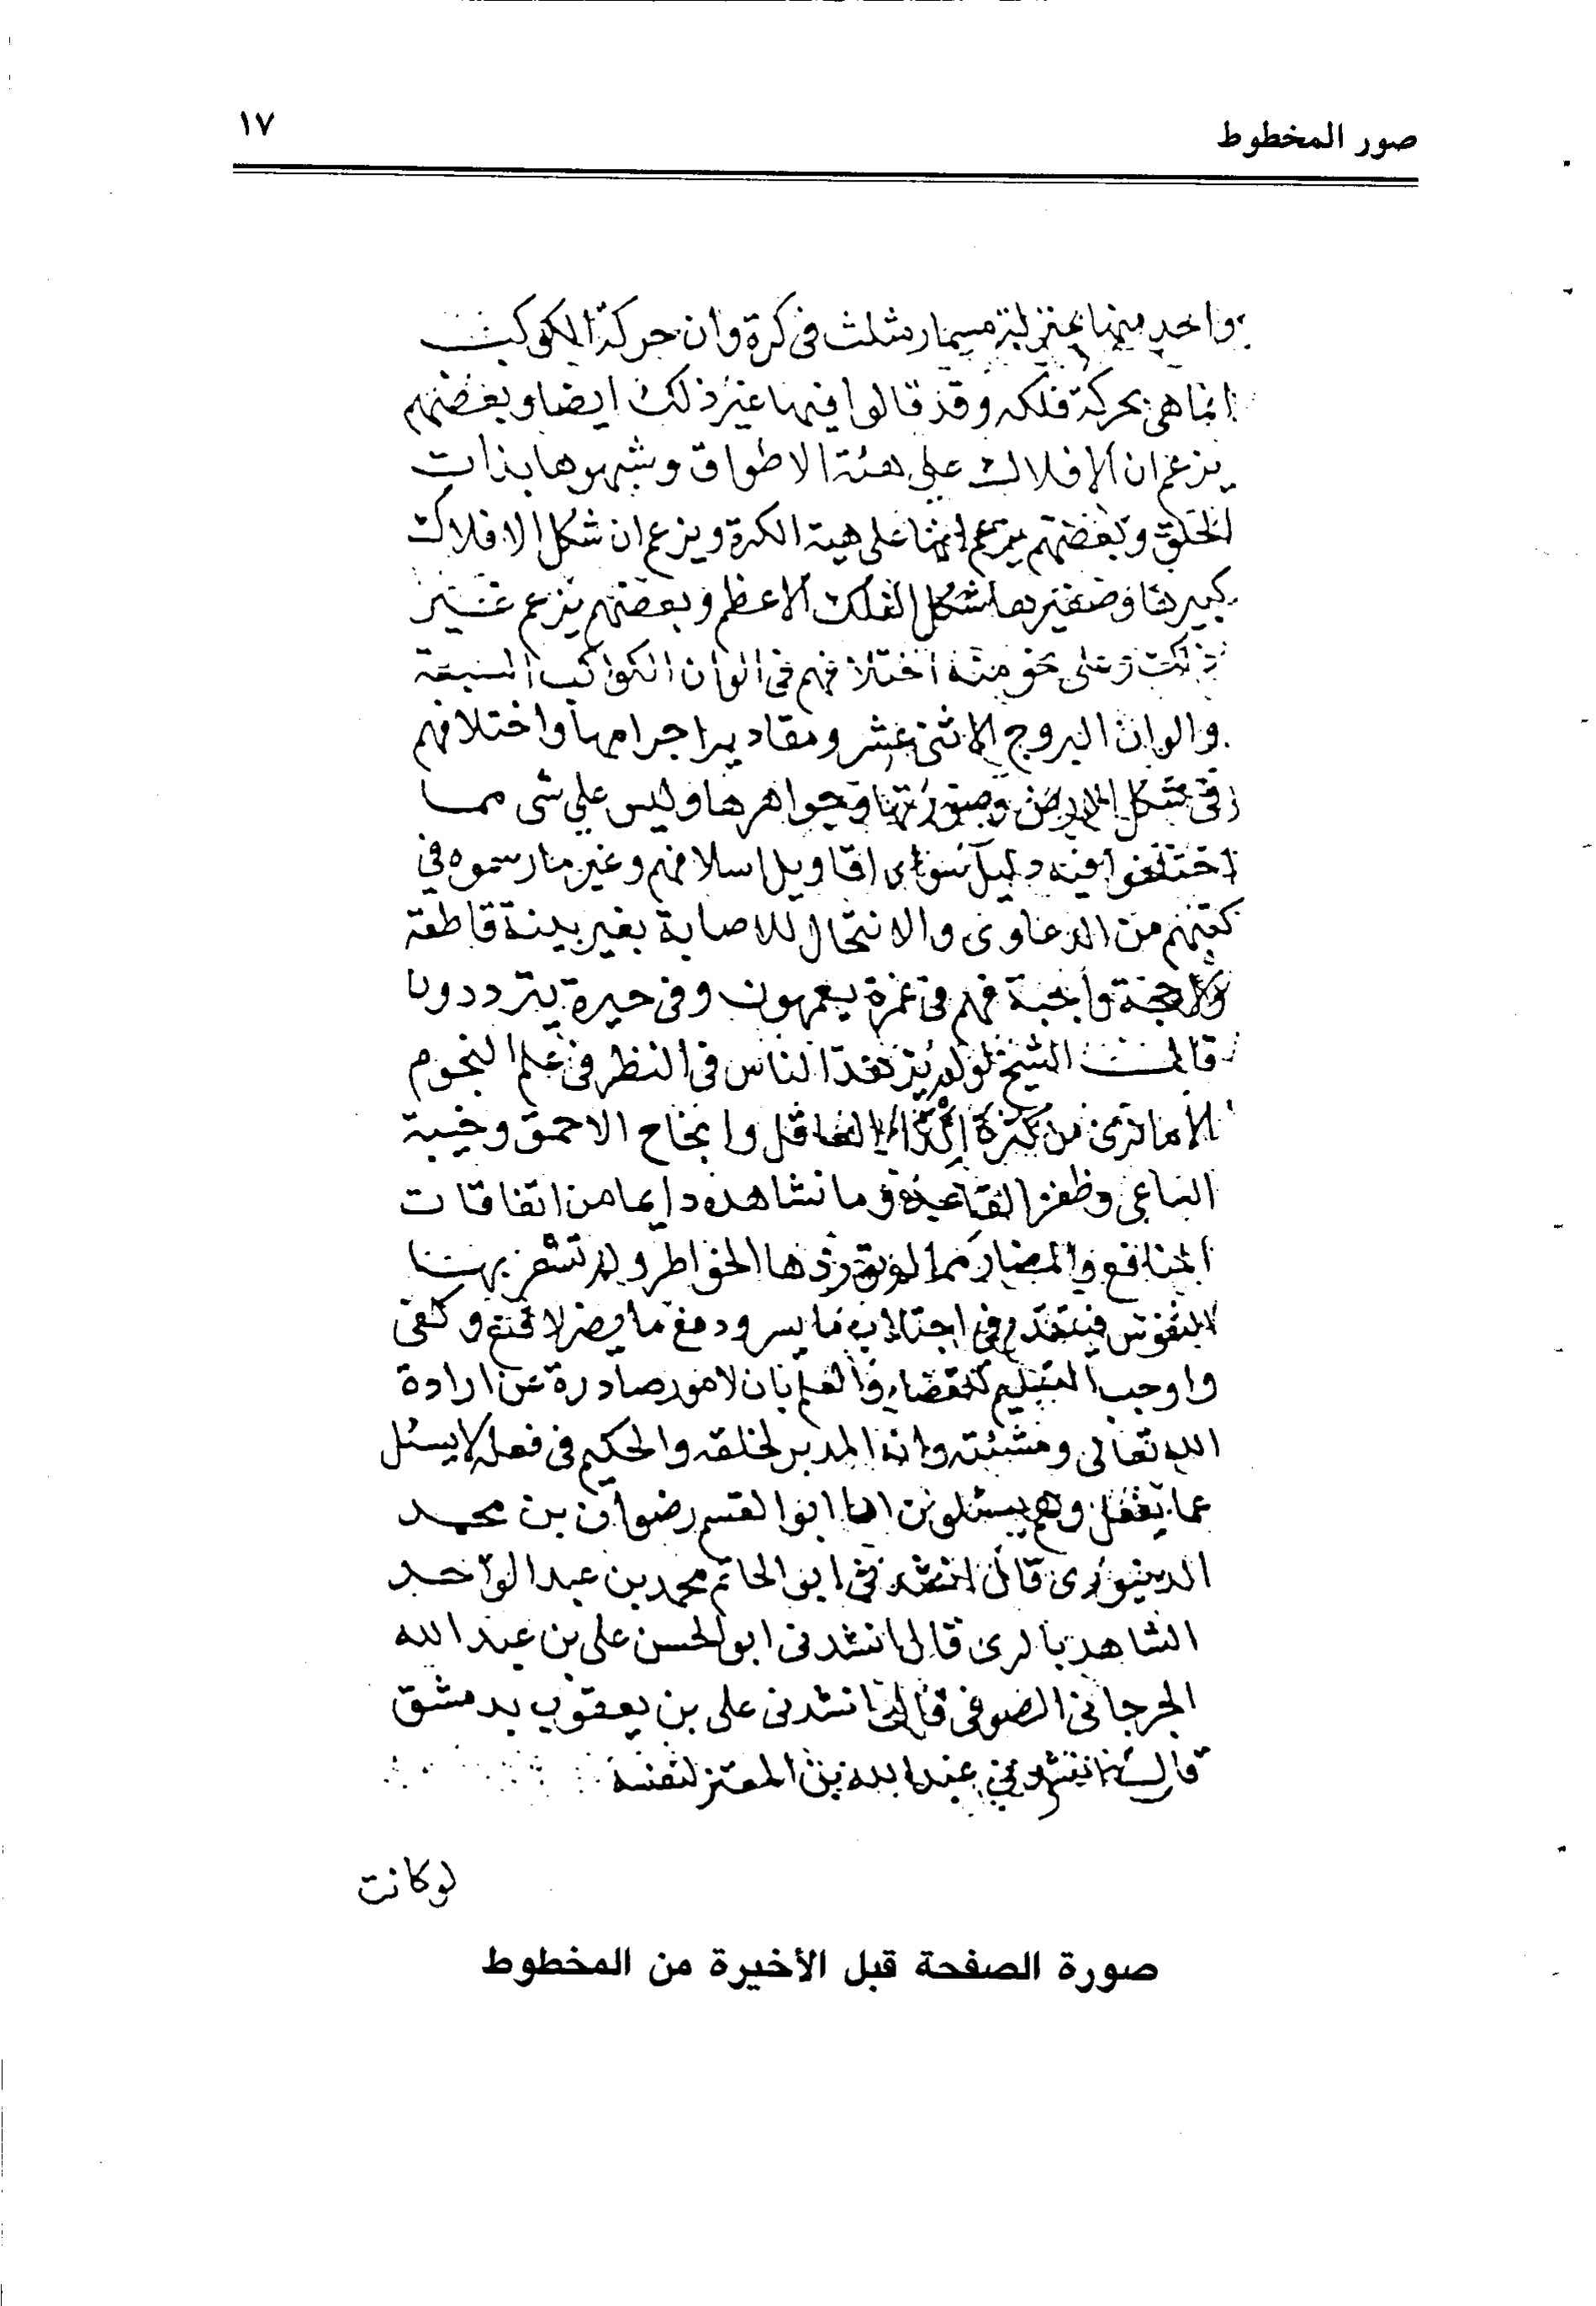 صور المخطوط
١٧
واحد منها بمنزلة مسمار مثلث في كرة وان حركة الكوكب
انما هي بحركة فلكه وقد قالوا فيها غير ذلك ايضا وبعضهم
يزعم ان الافلاك على هئة الاطواق وشبهوها بذات
الحلق وبعضهم يزعم انها على هية الكرة ويزعم ان شكل الافلاك
كبيرها وصغيرها لشكل الفلك الاعظم وبعضهم يزعم غير
ذلك وعلى نحو منه اختلافهم في الوان الكواكب السبعة
والوان البروج الاثني عشر ومقادير اجرامها واختلافهم
في شكل الارض وصورتها وجواهرها وليس على شى مما
اختلفوا فيه دليل سوى اقاويل اسلافهم وغير ما رسموه في
كتبهم من الدعاوى والانتحال للاصابة بغير بينة قاطعة
ولا حجة واجبة فهم في غمرة يعمهون وفى حيرة يترددون
قال الشيخ لو لم يزهد الناس في النظر في علم النجوم
الا ما ترى من كثرة الغافل وانجاح الاحمق وخيبة
الساعى وظفر القاعد وما نشاهده دايما من اتفاقات
المنافع والمضار مما لم تقررها الخواطر ولم تشعر بها
النفوس فيتقدم في اجتلاب ما يسر ودفع ما يضر لاقنع وكفى
واوجب التسليم للقضاء والعلم بان لامور صادرة عن ارادة
الله تعالى ومشئته وانه المدبر لخلقه والحكيم في فعله لا يسئل
عما يفعل وهم يسئلون انا ابو القسم رضوان بن محمد
الدينورى قال انشدني ابو الحاتم محمد بن عبد الواحد
الشاهد بالرى قال انشدنى ابو الحسن على بن عبد الله
الجرجاني الصوفى قال انشدنى على بن يعقوب بدمشق
قال انشدني عبد الله بن المعتز لنفسه
لو كانت
صورة الصفحة قبل الأخيرة من المخطوط